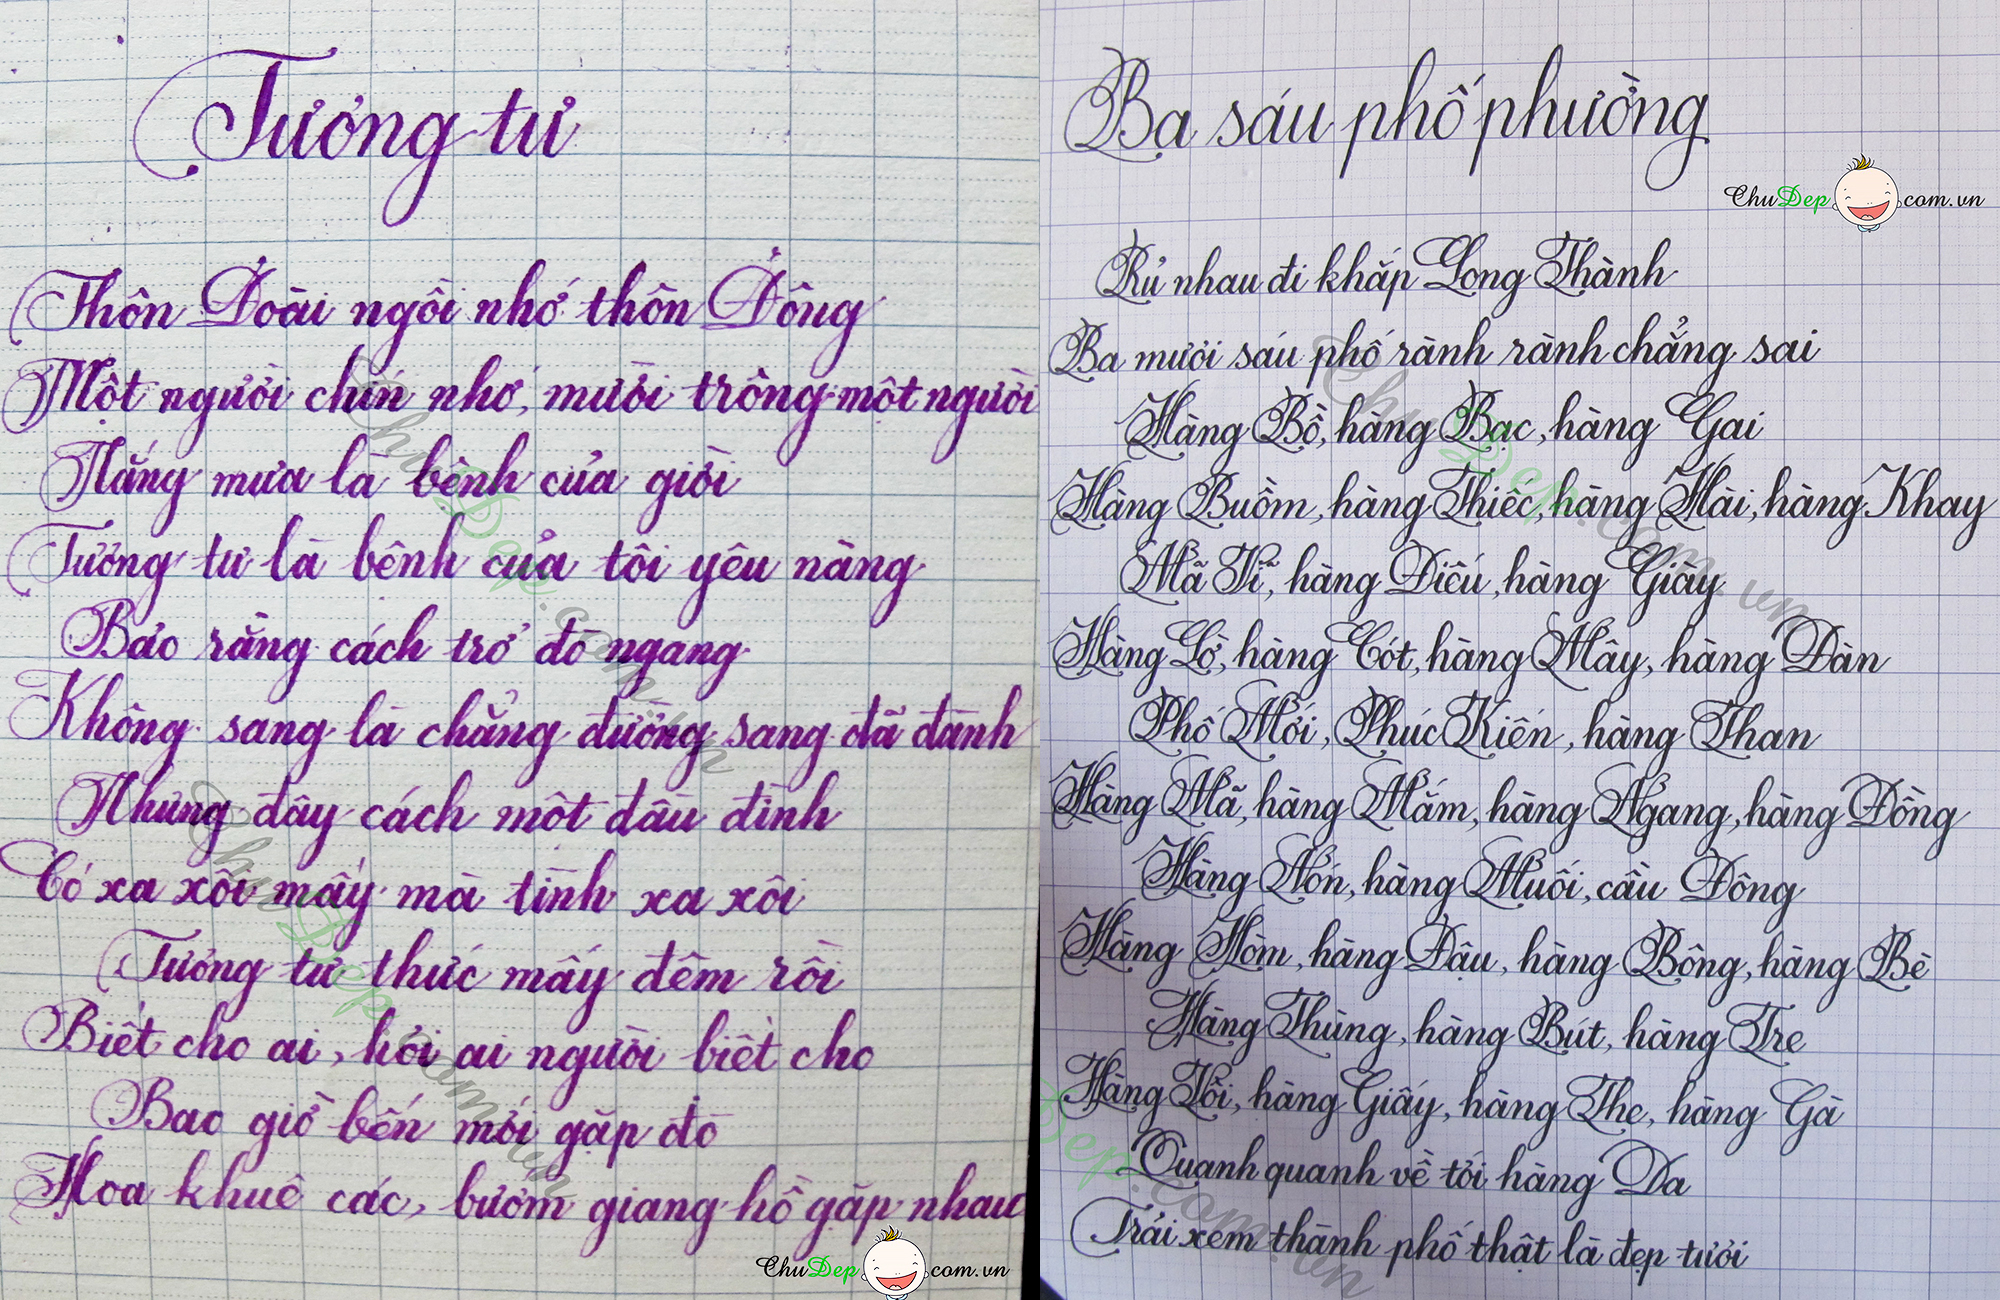 Tương tư
Thôn Đoài ngồi nhớ thôn Đông
Một người chín nhớ, mười trông một người
Nắng mưa là bệnh của giời
Tương tư là bệnh của tôi yêu nàng
Bảo rằng cách trở đò ngang
Không sang là chẳng đường sang đã đành
Nhưng đây cách một đầu đình
Có xa xôi mấy mà tình xa xôi
Tương tư thức mấy đêm rồi
Biết cho ai, hỏi ai người biết cho
Bao giờ bến mới gặp đò
Hoa khuê các, bướm giang hồ gặp nhau
ChuDep.com.vn
Ba sáu phố phường
ChuDep.com.vn
Rủ nhau đi khắp Long Thành
Ba mươi sáu phố rành rành chẳng sai
Hàng Bồ, hàng Bạc, hàng Gai
Hàng Buồm, hàng Thiếc, hàng Hài, hàng Khay
Mã Vĩ, hàng Điếu, hàng Giày
Hàng Lờ, hàng Cót, hàng Mây, hàng Đàn
Phố Mới, Phúc Kiến, hàng Than
Hàng Mã, hàng Mắm, hàng Ngang, hàng Đồng
Hàng Nón, hàng Muối, cầu Đông
Hàng Hòm, hàng Đậu, hàng Bông, hàng Bè
Hàng Thùng, hàng Bút, hàng Tre
Hàng Vôi, hàng Giấy, hàng The, hàng Gà
Quanh quanh về tới hàng Da
Trải xem thành phố thật là đẹp tươi
ChuDep.com.vn
ChuDep.com.vn
ChuDep.com.vn
Dep.com.vn